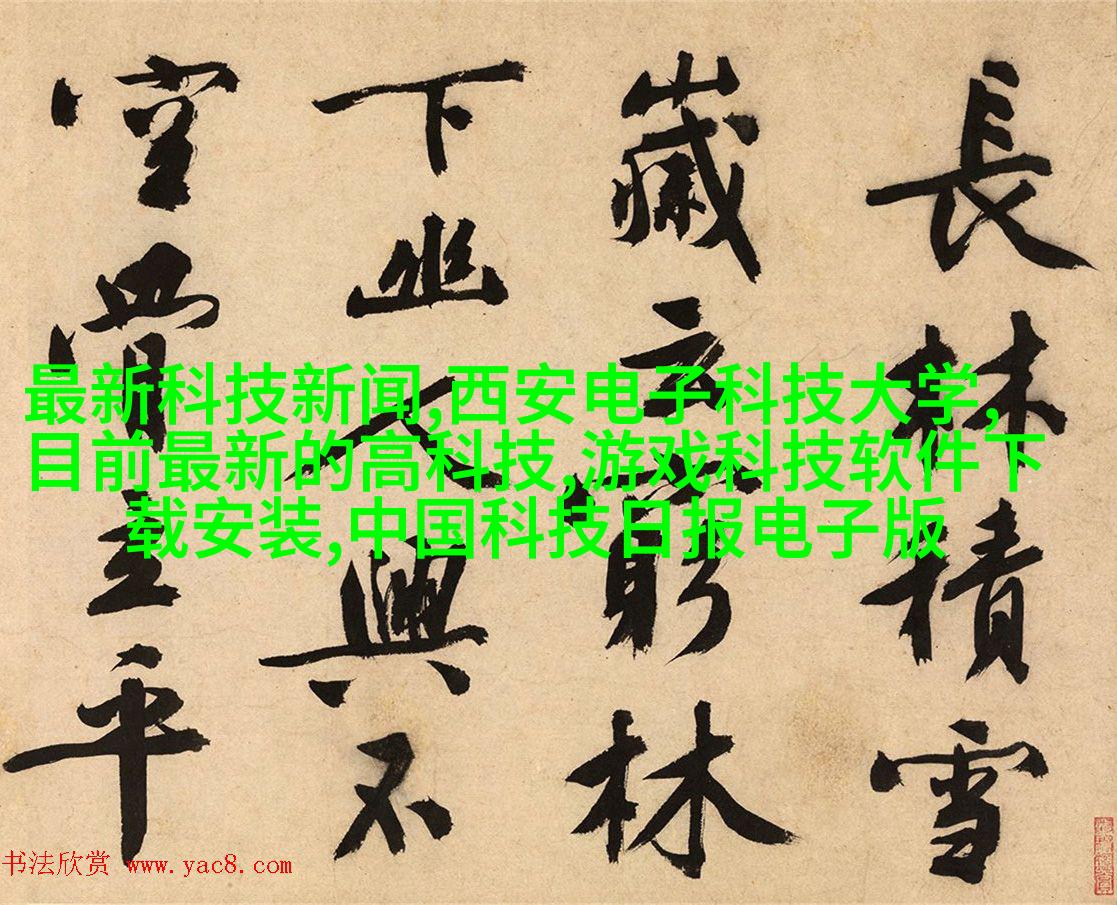 長林積雪
歲云窮林
下幽人興不
空骨立平
最新科技新闻,西安电子科技大学,
目前最新的高科技,游戏科技软件下
载安装,中国科技日报电子版
书法欣赏 www.yac8.com